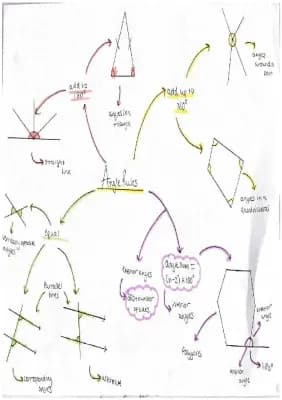 add to
180°
angles in
triangle
straight
line
add up to
360°
angles
around a
point
angles in a
quadrilateral
Angle Rules
Equal
vertically opposite
angles
Parallel
lines
corresponding
angles
alternate
exterior angles
=
360÷number
of sides
angle sum =
(n-2) × 180°
interior
angles
Polygons
exterior
angle
interior
angle
180°